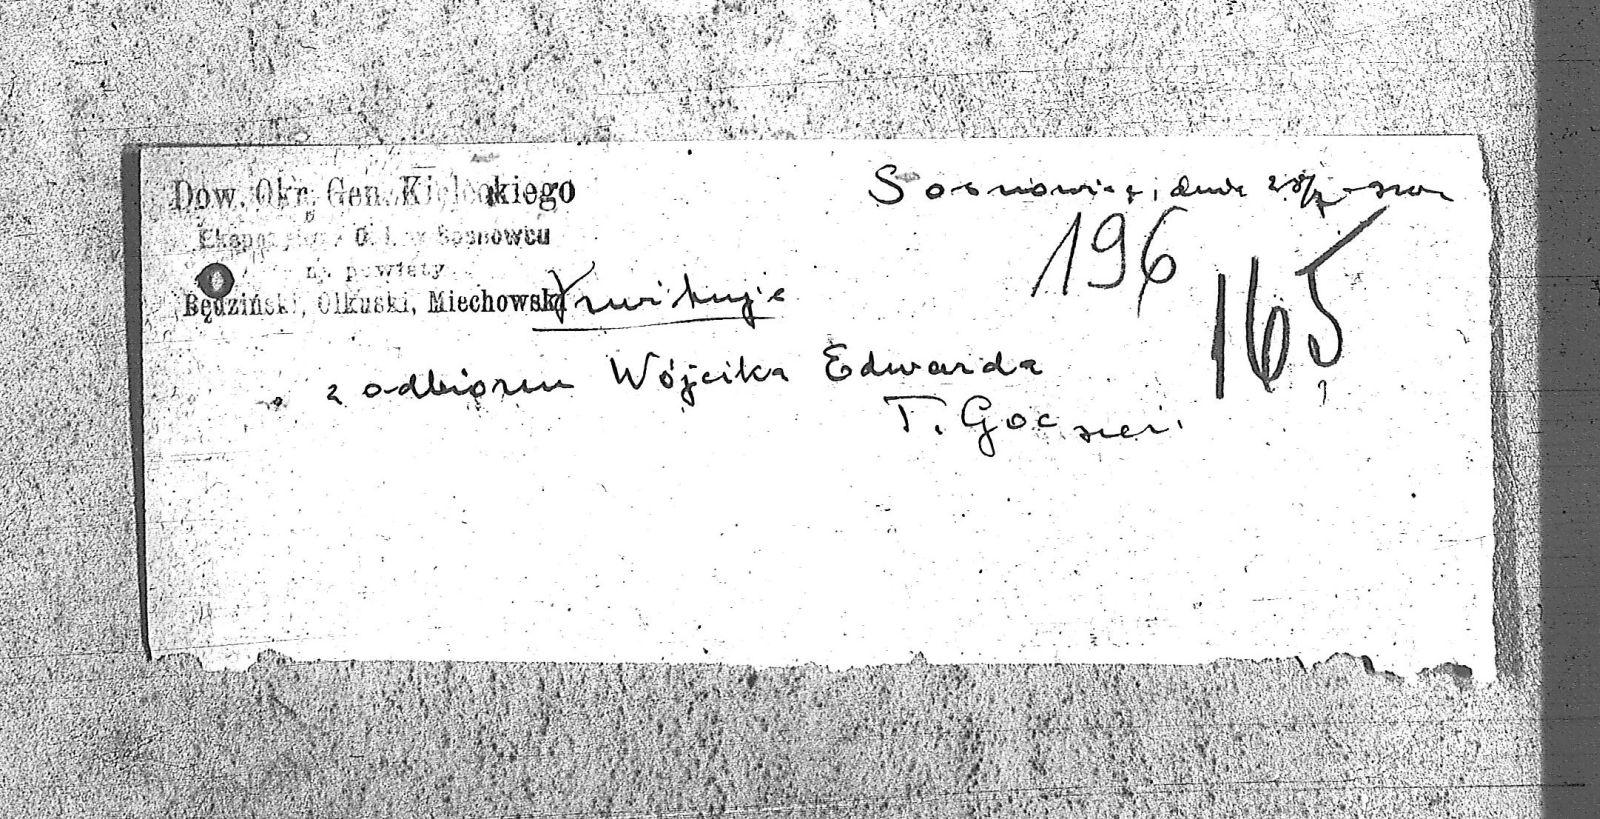 Dow. Okr. Gen. Kieleckiego
Sosnowiec, dnia 28/
Ekspozytura O. I. w Sosnowcu
196
na powiaty
165
Będziński, Olkuski, Miechowski
Kwituję
z odbioru Wójcika Edwarda
T. Goc